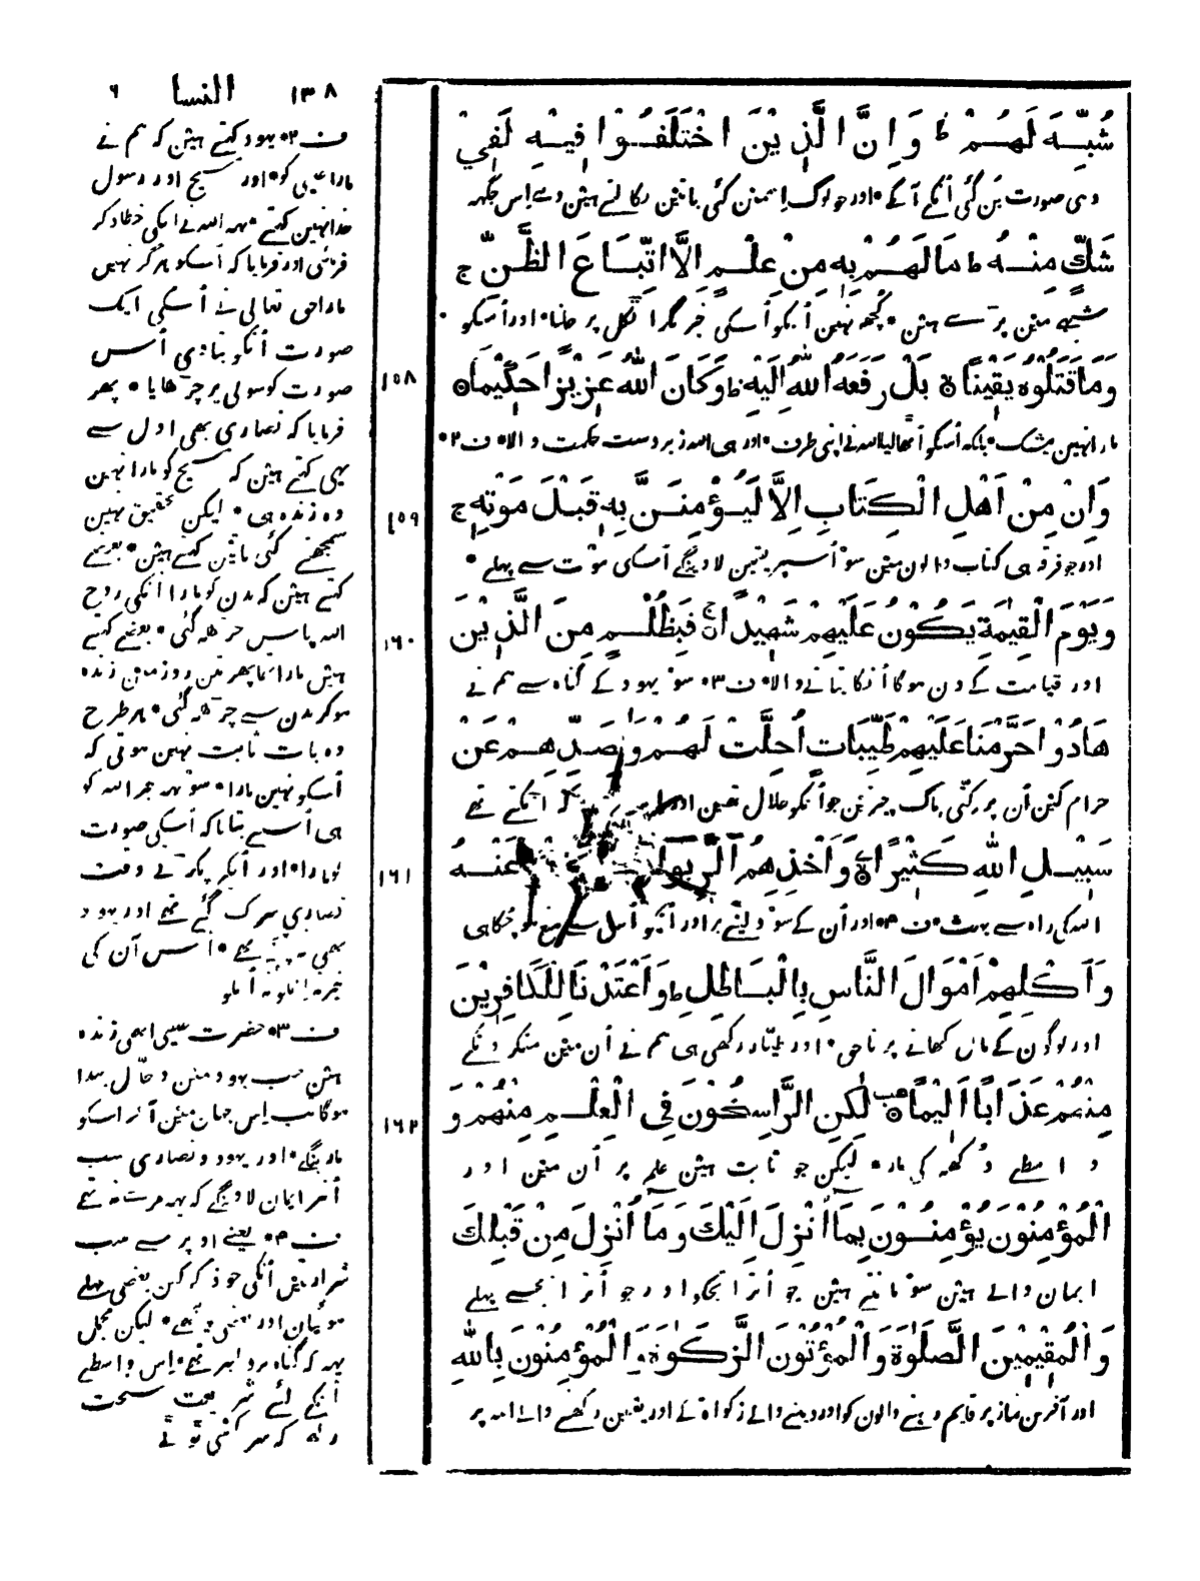 ١٣٨ النسا ٦
شُبِّهَ لَهُمْ ط وَاِنَّ الَّذِيْنَ اخْتَلَفُوْا فِيْهِ لَفِيْ
وہی صورت بن گئی انکے آگے * اور جو لوگ اسمین کئی باتین نکالتے ہین وے اس جگہہ
شَكٍّ مِنْهُ ط مَا لَهُمْ بِهٖ مِنْ عِلْمٍ اِلَّا اتِّبَاعَ الظَّنِّ ج
شبہے مین پرے ہین * کچھ نہین انکو اسکی خبر مگر اٹکل پر چلنا * اور اسکو
وَمَا قَتَلُوْهُ يَقِيْنًا ۝ بَلْ رَفَعَهُ اللّٰهُ اِلَيْهِ ط وَكَانَ اللّٰهُ عَزِيْزًا حَكِيْمًا ۝
١٥٨
مارا نہین بیشک * بلکہ اسکو اٹھا لیا اللہ نے اپنی طرف * اور ہی اللہ زبردست حکمت والا * ف ٢ *
وَاِنْ مِنْ اَهْلِ الْكِتَابِ اِلَّا لَيُؤْمِنَنَّ بِهٖ قَبْلَ مَوْتِهٖ ج
١٥٩
اور جو فرقہ ہی کتاب والون مین سو اسپر یقین لاوینگے اسکی موت سے پہلے *
وَيَوْمَ الْقِيٰمَةِ يَكُوْنُ عَلَيْهِمْ شَهِيْدًا ۝ فَبِظُلْمٍ مِنَ الَّذِيْنَ
١٦٠
اور قیامت کے دن ہوگا انکا بتانے والا * ف ٣ * سو یہود کے گناہ سے ہم نے
هَادُوْا حَرَّمْنَا عَلَيْهِمْ طَيِّبَاتٍ اُحِلَّتْ لَهُمْ وَبِصَدِّهِمْ عَنْ
حرام کین ان پر کتی پاک چیزین جو انکو حلال تھین اور اٹکتے تھے
سَبِيْلِ اللّٰهِ كَثِيْرًا ۝ وَاَخْذِهِمُ الرِّبٰوا عَنْهُ
١٦١
اللہ کی راہ سے بہت * ف ٤ * اور ان کے سود لینے پر اور انکو اس سے منع ہو چکا ہی
وَاَكْلِهِمْ اَمْوَالَ النَّاسِ بِالْبَاطِلِ ط وَاَعْتَدْنَا لِلْكَافِرِيْنَ
اور لوگون کے مال کھانے پر ناحق * اور طیار رکھی ہی ہم نے ان مین منکرونکے
مِنْهُمْ عَذَابًا اَلِيْمًا ۝ لٰكِنِ الرَّاسِخُوْنَ فِى الْعِلْمِ مِنْهُمْ وَ
١٦٢
واسطے دکھہ کی مار * لیکن جو ثابت ہین علم پر ان مین اور
الْمُؤْمِنُوْنَ يُؤْمِنُوْنَ بِمَا اُنْزِلَ اِلَيْكَ وَمَا اُنْزِلَ مِنْ قَبْلِكَ
ایمان والے ہین سو مانتے ہین جو اترا تجکو اور جو اترا تجسے پہلے
وَالْمُقِيْمِيْنَ الصَّلٰوةَ وَالْمُؤْتُوْنَ الزَّكٰوةَ وَالْمُؤْمِنُوْنَ بِاللّٰهِ
اور آفرین نماز پر قایم رہنے والون کو اور دینے والے زکواة کے اور یقین رکھنے والے اللہ پر
ف ٢ * یہود کہتے ہین کہ ہم نے
مارا عیسی کو * اور مسیح اور رسول
خدا نہین کہتے * یہہ اللہ نے انکی خطا ذکر
فرمائی اور فرمایا کہ اسکو ہرگز نہین
مارا حق تعالی نے اسکی ایک
صورت انکو بنا دی اس
صورت کو سولی پر چرھایا * پھر
فرمایا کہ نصاری بھی اول سے
یہی کہتے ہین کہ مسیح کو مارا نہین
وہ زندہ ہی * لیکن تحقیق نہین
سمجھتے کئی باتین کہتے ہین * بعضے
کہتے ہین کہ بدن کو مارا انکی روح
اللہ پاس چرھہ گئی * بعضے کہتے
ہین مارا تھا پھر تین روز مین زندہ
ہو کر بدن سے چرھہ گئی * ہر طرح
وہ بات ثابت نہین ہوتی کہ
اسکو نہین مارا * سو یہہ خبر اللہ کو
ہی اس نے بتایا کہ اسکی صورت
کو مارا * اور انکے پکرتے وقت
نصاری سرک گئے تھے اور یہود
بھی نہ پہنچے تھے * اس آن کی
خبر نہ انکو نہ انکو
ف ٣ * حضرت عیسی ابھی زندہ
ہین جب یہود مین دجال پیدا
ہوگا تب اس جہان مین آ کر اسکو
مارینگے * اور یہود و نصاری سب
انپر ایمان لاوینگے کہ یہہ مرے نہ تھے
ف ٤ * یعنے اوپر سے سب
شرارتین انکی جو ذکر کین بعضی پہلے
ہوئیان اور بعضی پیچھے * لیکن مجمل
یہہ کہ گناہ پر دلیر تھے * اس واسطے
انکے لئے شریعت سخت
رکھی کہ سرکشی ٹوٹے